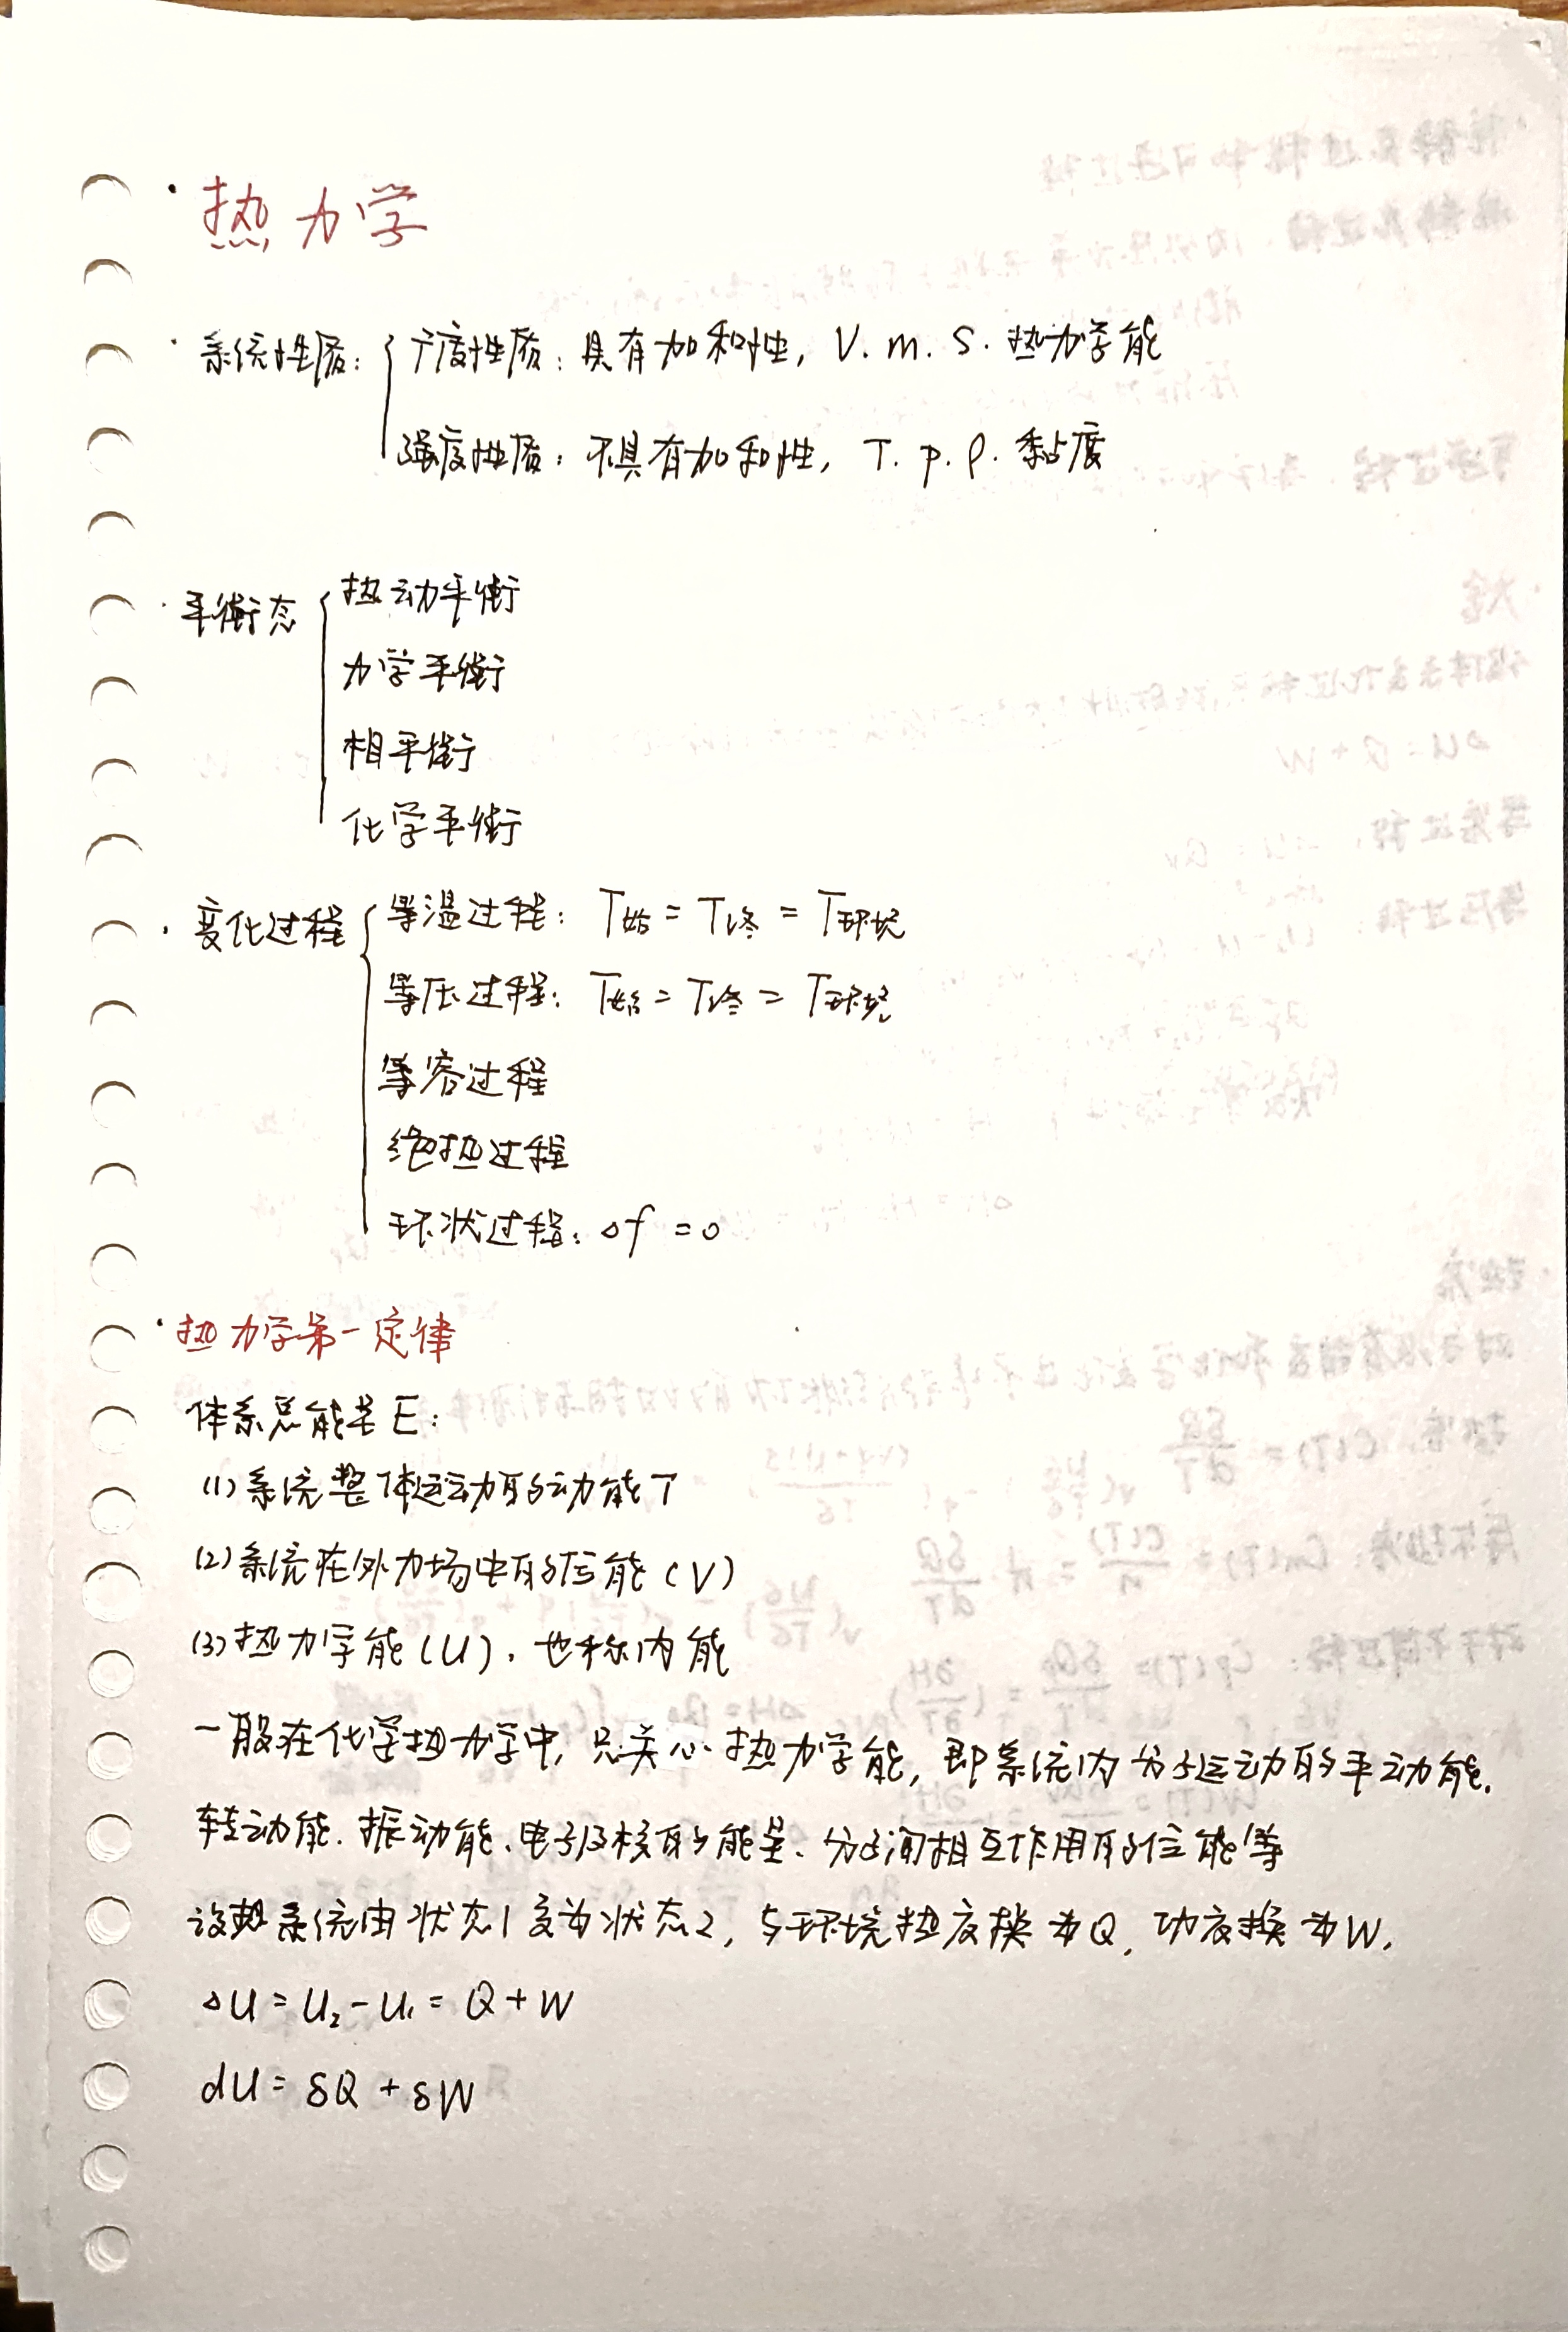 · 热力学
· 系统性质: { 广度性质: 具有加和性, V. m. S. 热力学能
强度性质: 不具有加和性, T. p. ρ. 黏度
· 平衡态 { 热动平衡
力学平衡
相平衡
化学平衡
· 变化过程 { 等温过程: T始 = T终 = T环境
等压过程: T始 = T终 = T环境
等容过程
绝热过程
环状过程: Δf = 0
· 热力学第一定律
体系总能量E:
(1) 系统整体运动的动能T
(2) 系统在外力场中的位能(V)
(3) 热力学能(U), 也称内能
一般在化学热力学中, 只关心热力学能, 即系统内分子运动的平动能.
转动能. 振动能. 电子及核的能量. 分子间相互作用的位能等
设想系统由状态1变为状态2, 与环境热交换为Q, 功交换为W.
ΔU = U₂ - U₁ = Q + W
dU = δQ + δW